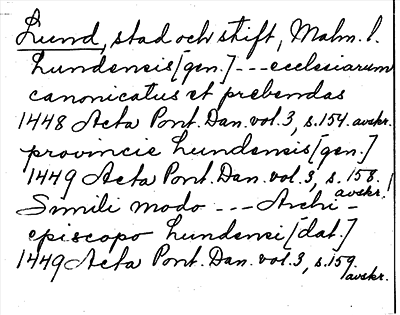 Lund, stad och stift, Malm. l.
Lundensis [gen.] --- ecclesiarum
canonicatus et prebendas
1448 Acta Pont. Dan. vol. 3, s. 154. avskr.
provincie Lundensis [gen.]
1449 Acta Pont. Dan. vol. 3, s. 158. avskr.!
Simili modo --- Archi-
episcopo Lundensi [dat.]
1449 Acta Pont. Dan. vol. 3, s. 159. avskr.